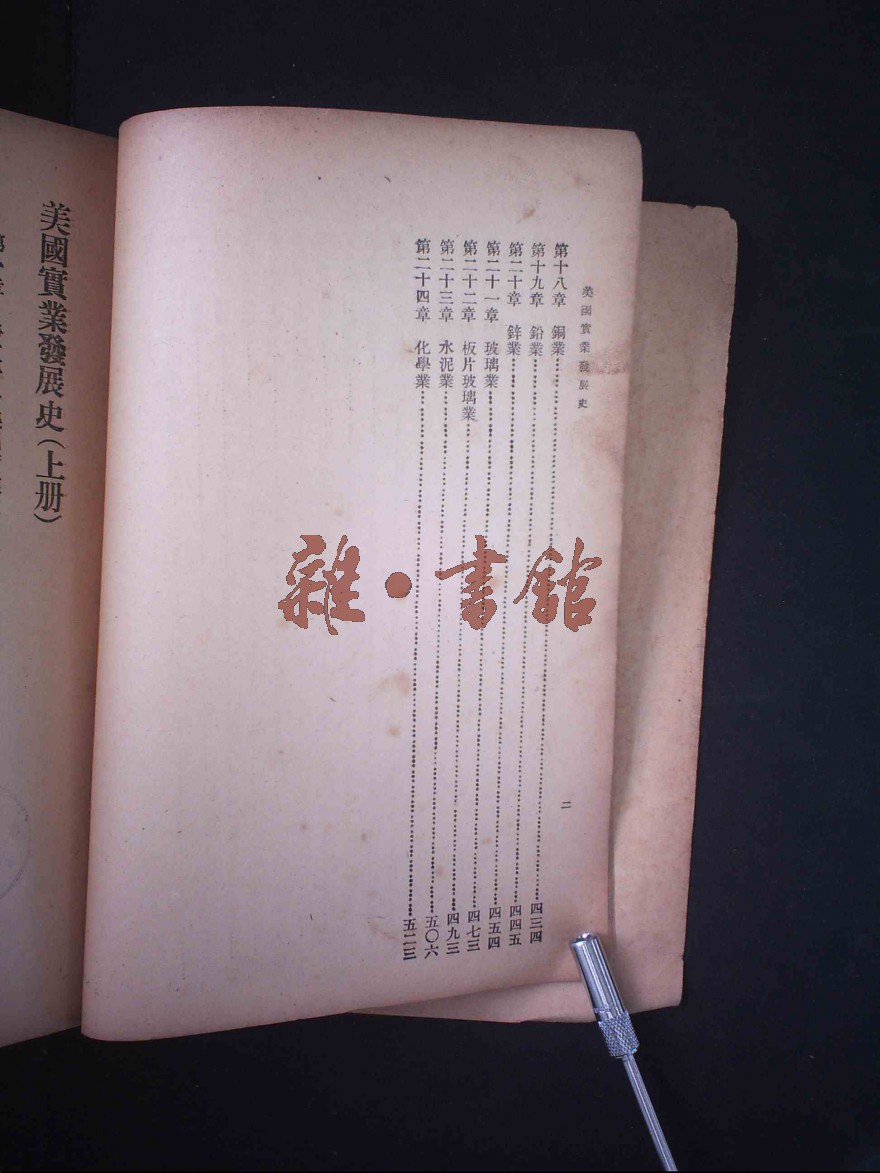 美國實業發展史
第十八章 銅業……四三四
第十九章 鉛業……四四五
第二十章 鋅業……四五四
第二十一章 玻璃業……四七三
第二十二章 板片玻璃業……四九三
第二十三章 水泥業……五〇六
第二十四章 化學業……五二三
二
美國實業發展史(上册)
雜·書館